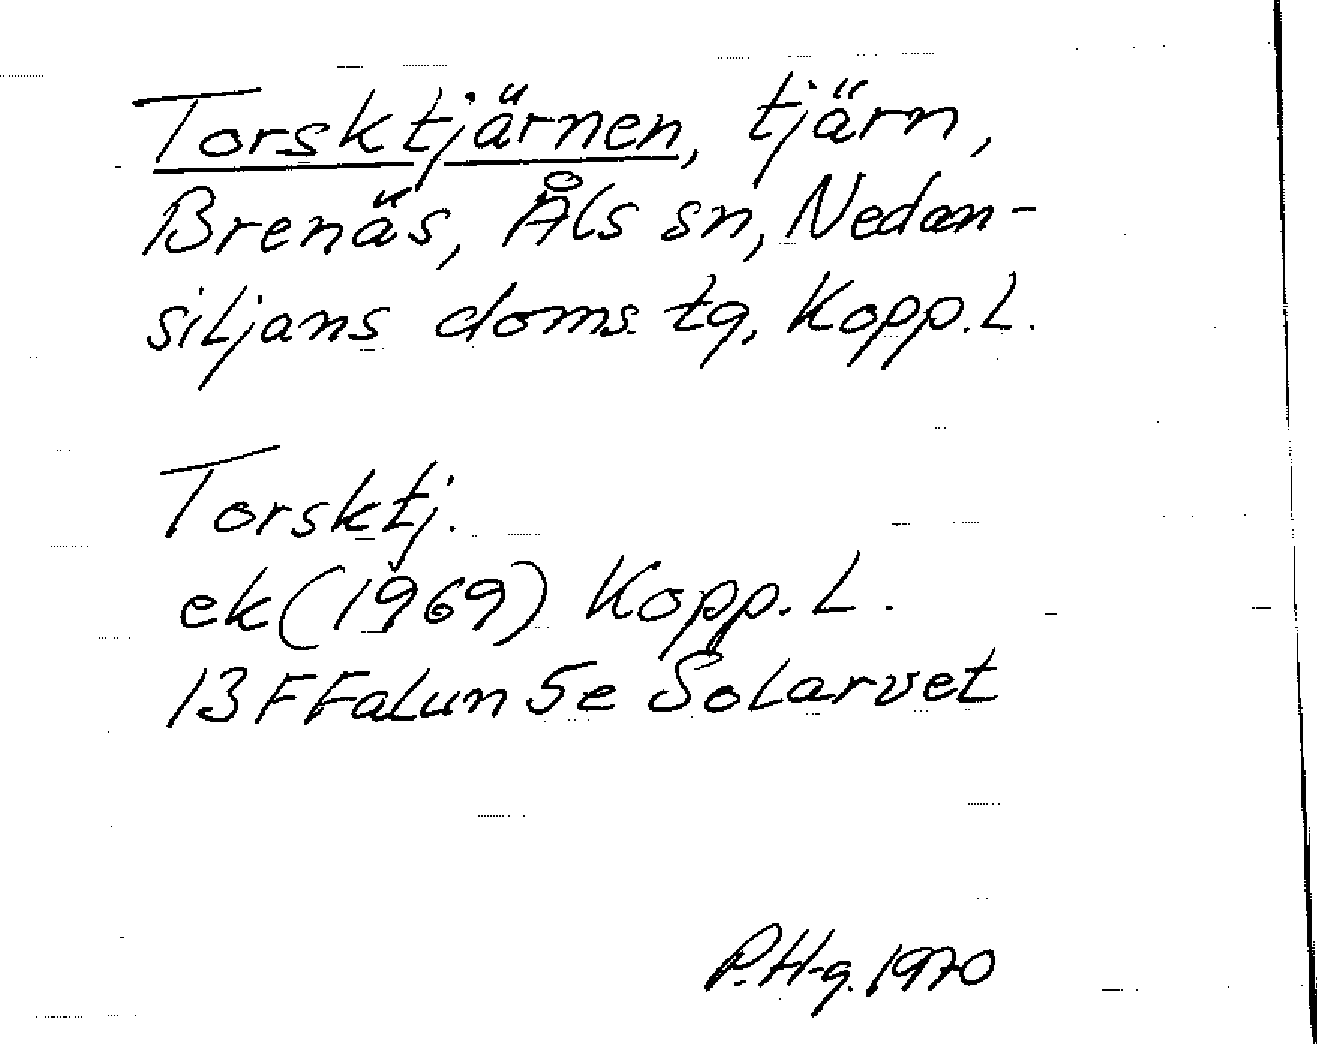 Torsktjärnen, tjärn,
Brenäs, Åls sn, Nedan-
siljans doms. tg, Kopp. L.
Torsktj.
ek (1969) Kopp. L.
13F Falun 5e Solarvet
P. H-g. 1970